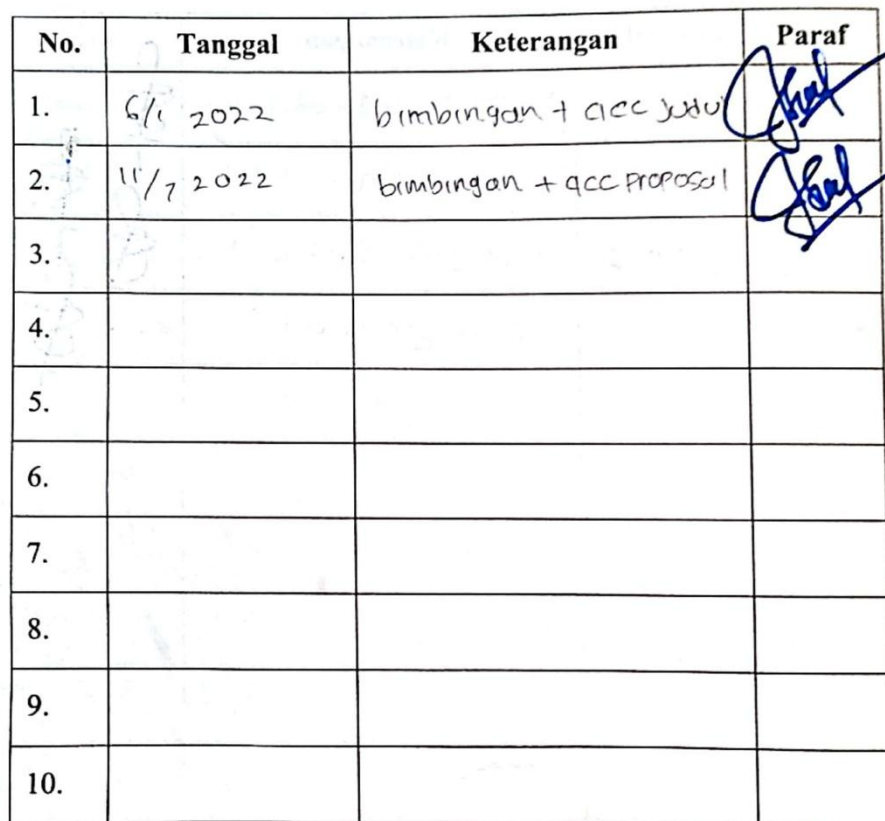 No. Tanggal Keterangan Paraf
1. 6/1 2022 bimbingan + acc judul
2. 11/7 2022 bimbingan + acc proposal
3.
4.
5.
6.
7.
8.
9.
10.